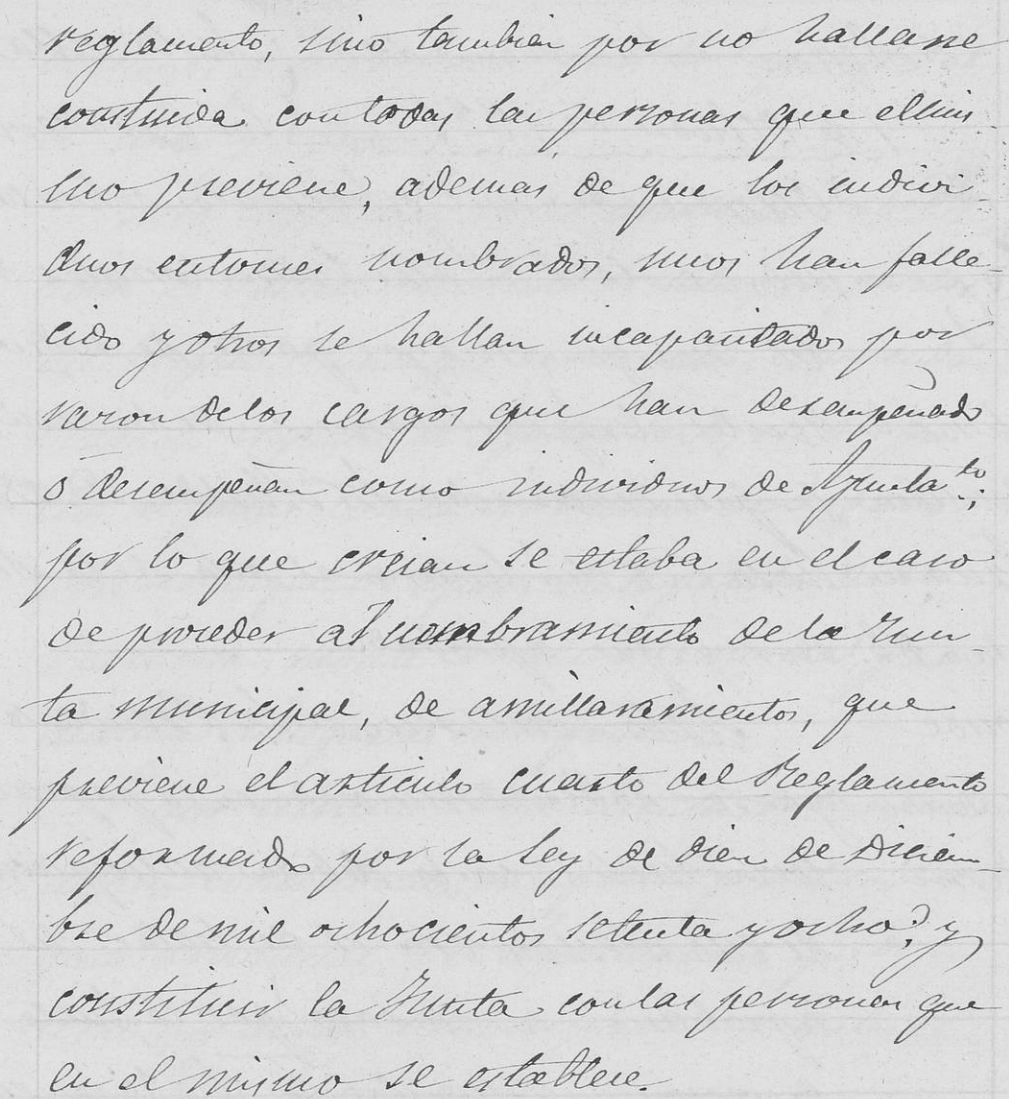 reglamento, sino tambien por no hallarse
constuida con todas las personas que el mis-
mo previene, ademas de que los indivi-
duos entonces nombrados, unos han falle-
cido y otros se hallan incapacitados por
razon de los cargos que han desempeñado
ó desempeñan como individuos de Ayunta.to;
por lo que creian se estaba en el caso
de proceder al nombramiento de la Jun-
ta municipal, de amillaramientos, que
previene el articulo cuarto del Reglamento
reformado por la ley de diez de Diciem-
bre de mil ochocientos setenta y ocho, y
constituir la Junta con las personas que
en el mismo se establece.